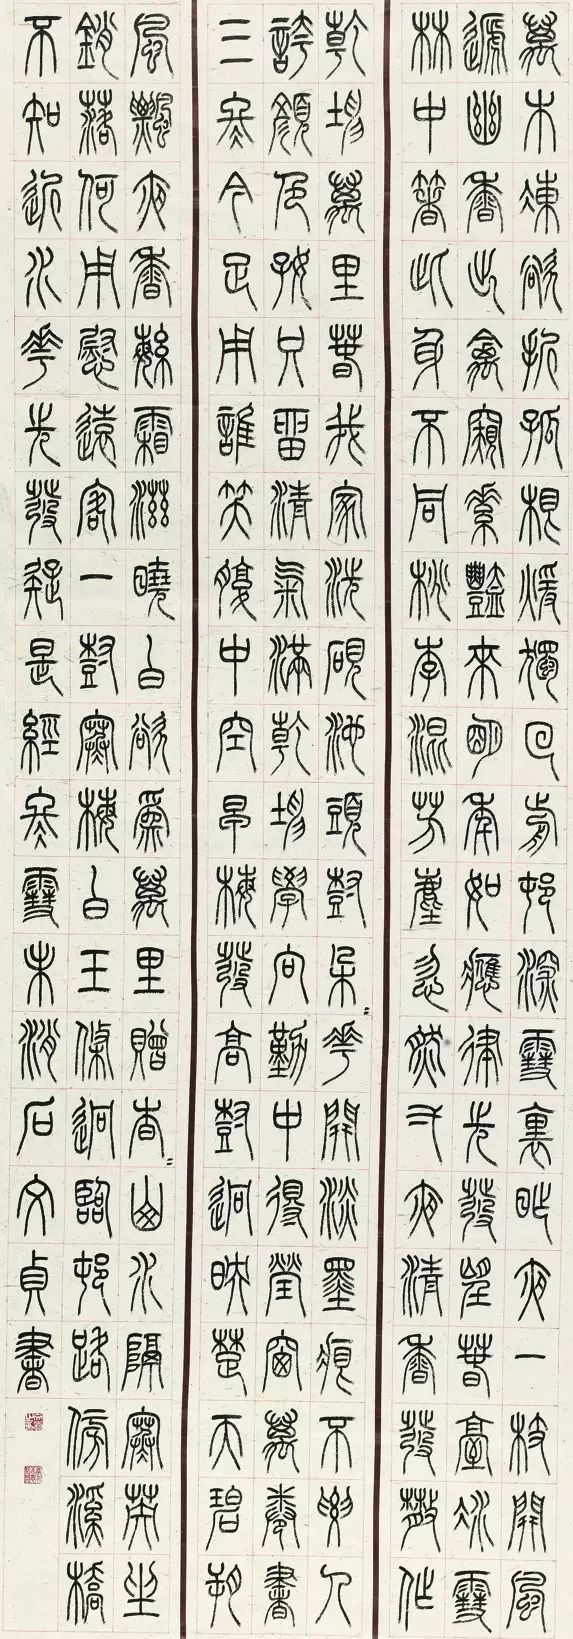 萬木凍欲折孤根暖獨回前村深雪裏昨夜一枝開風
遞幽香出禽窺素艷來明年如應律先發望春臺冰雪
林中著此身不同桃李混芳塵忽然一夜清香發散作
乾坤萬里春我家洗硯池頭樹朵〻花開淡墨痕不要人
誇顏色好只留清氣滿乾坤學向勤中得螢窗萬卷書
三冬今足用誰笑腹中空早梅發高樹迥映楚天碧朔
風飄夜香繁霜滋曉白欲為萬里贈杳〻山水隔寒英坐
銷落何用慰遠客一樹寒梅白玉條迥臨村路傍溪橋
不知近水花先發疑是經冬雪未消石文貞書